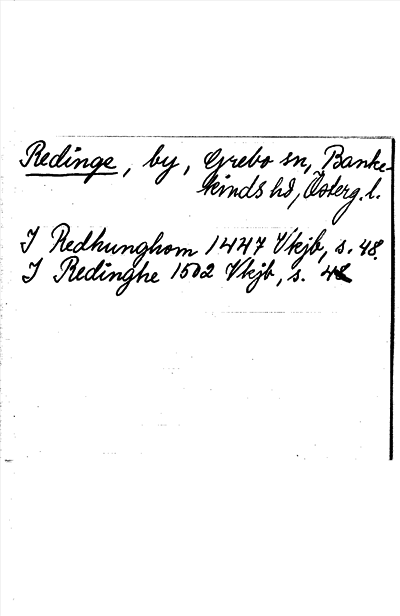 Redinge, by, Grebo sn, Banke-
kinds hd, Österg. l.
I Redhunghom 1447 Vkjb, s. 48.
I Redinghe 1502 Vkjb, s. 48